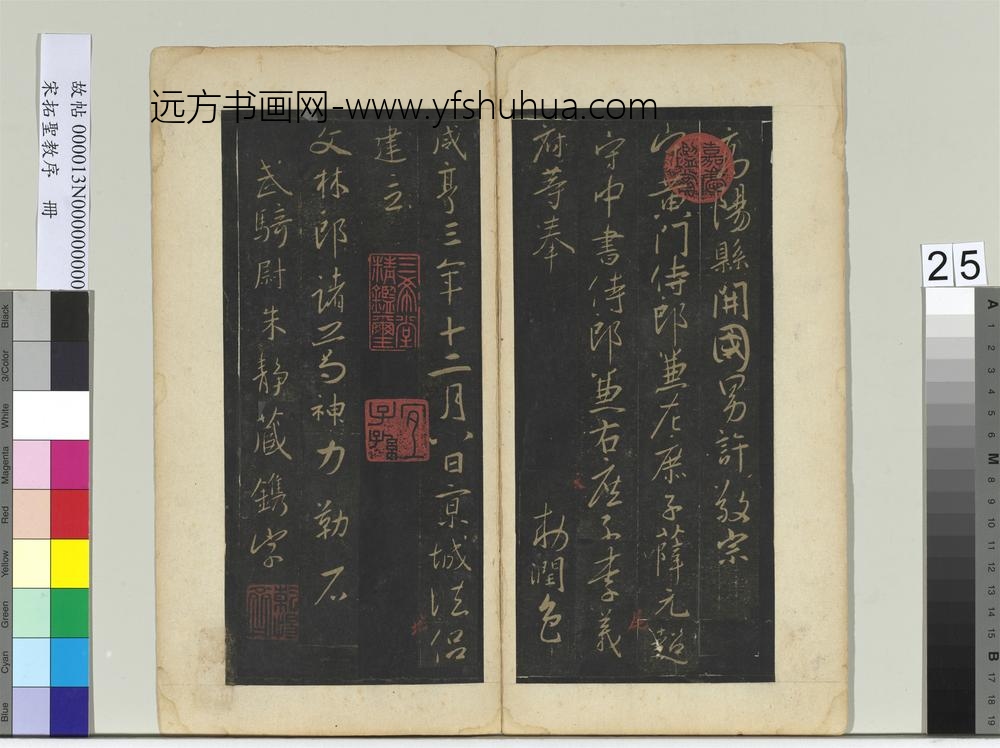 远方书画网-www.yfshuhua.com
故帖 000013N000000000
宋拓聖教序 冊
25
高陽縣開國男許敬宗
守黃門侍郎兼左庶子薛元超
守中書侍郎兼右庶子李義
府等奉 敕潤色
咸亨三年十二月八日京城法侶
建立
文林郎諸葛神力勒石
武騎尉朱靜藏鐫字
嘉慶鑑賞
三希堂精鑑璽
宜子孫
Black
3/Color
White
Magenta
Red
Yellow
Green
Cyan
Blue
A
1
2
3
4
5
6
M
8
9
10
11
12
13
14
15
B
17
18
19